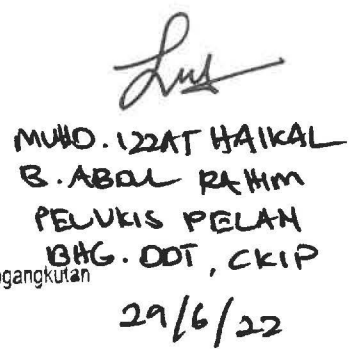 MUHD. IZZAT HAIKAL
B. ABDUL RAHIM
PELUKIS PELAN
BHG. DDT, CKIP
ngangkutan
29/6/22